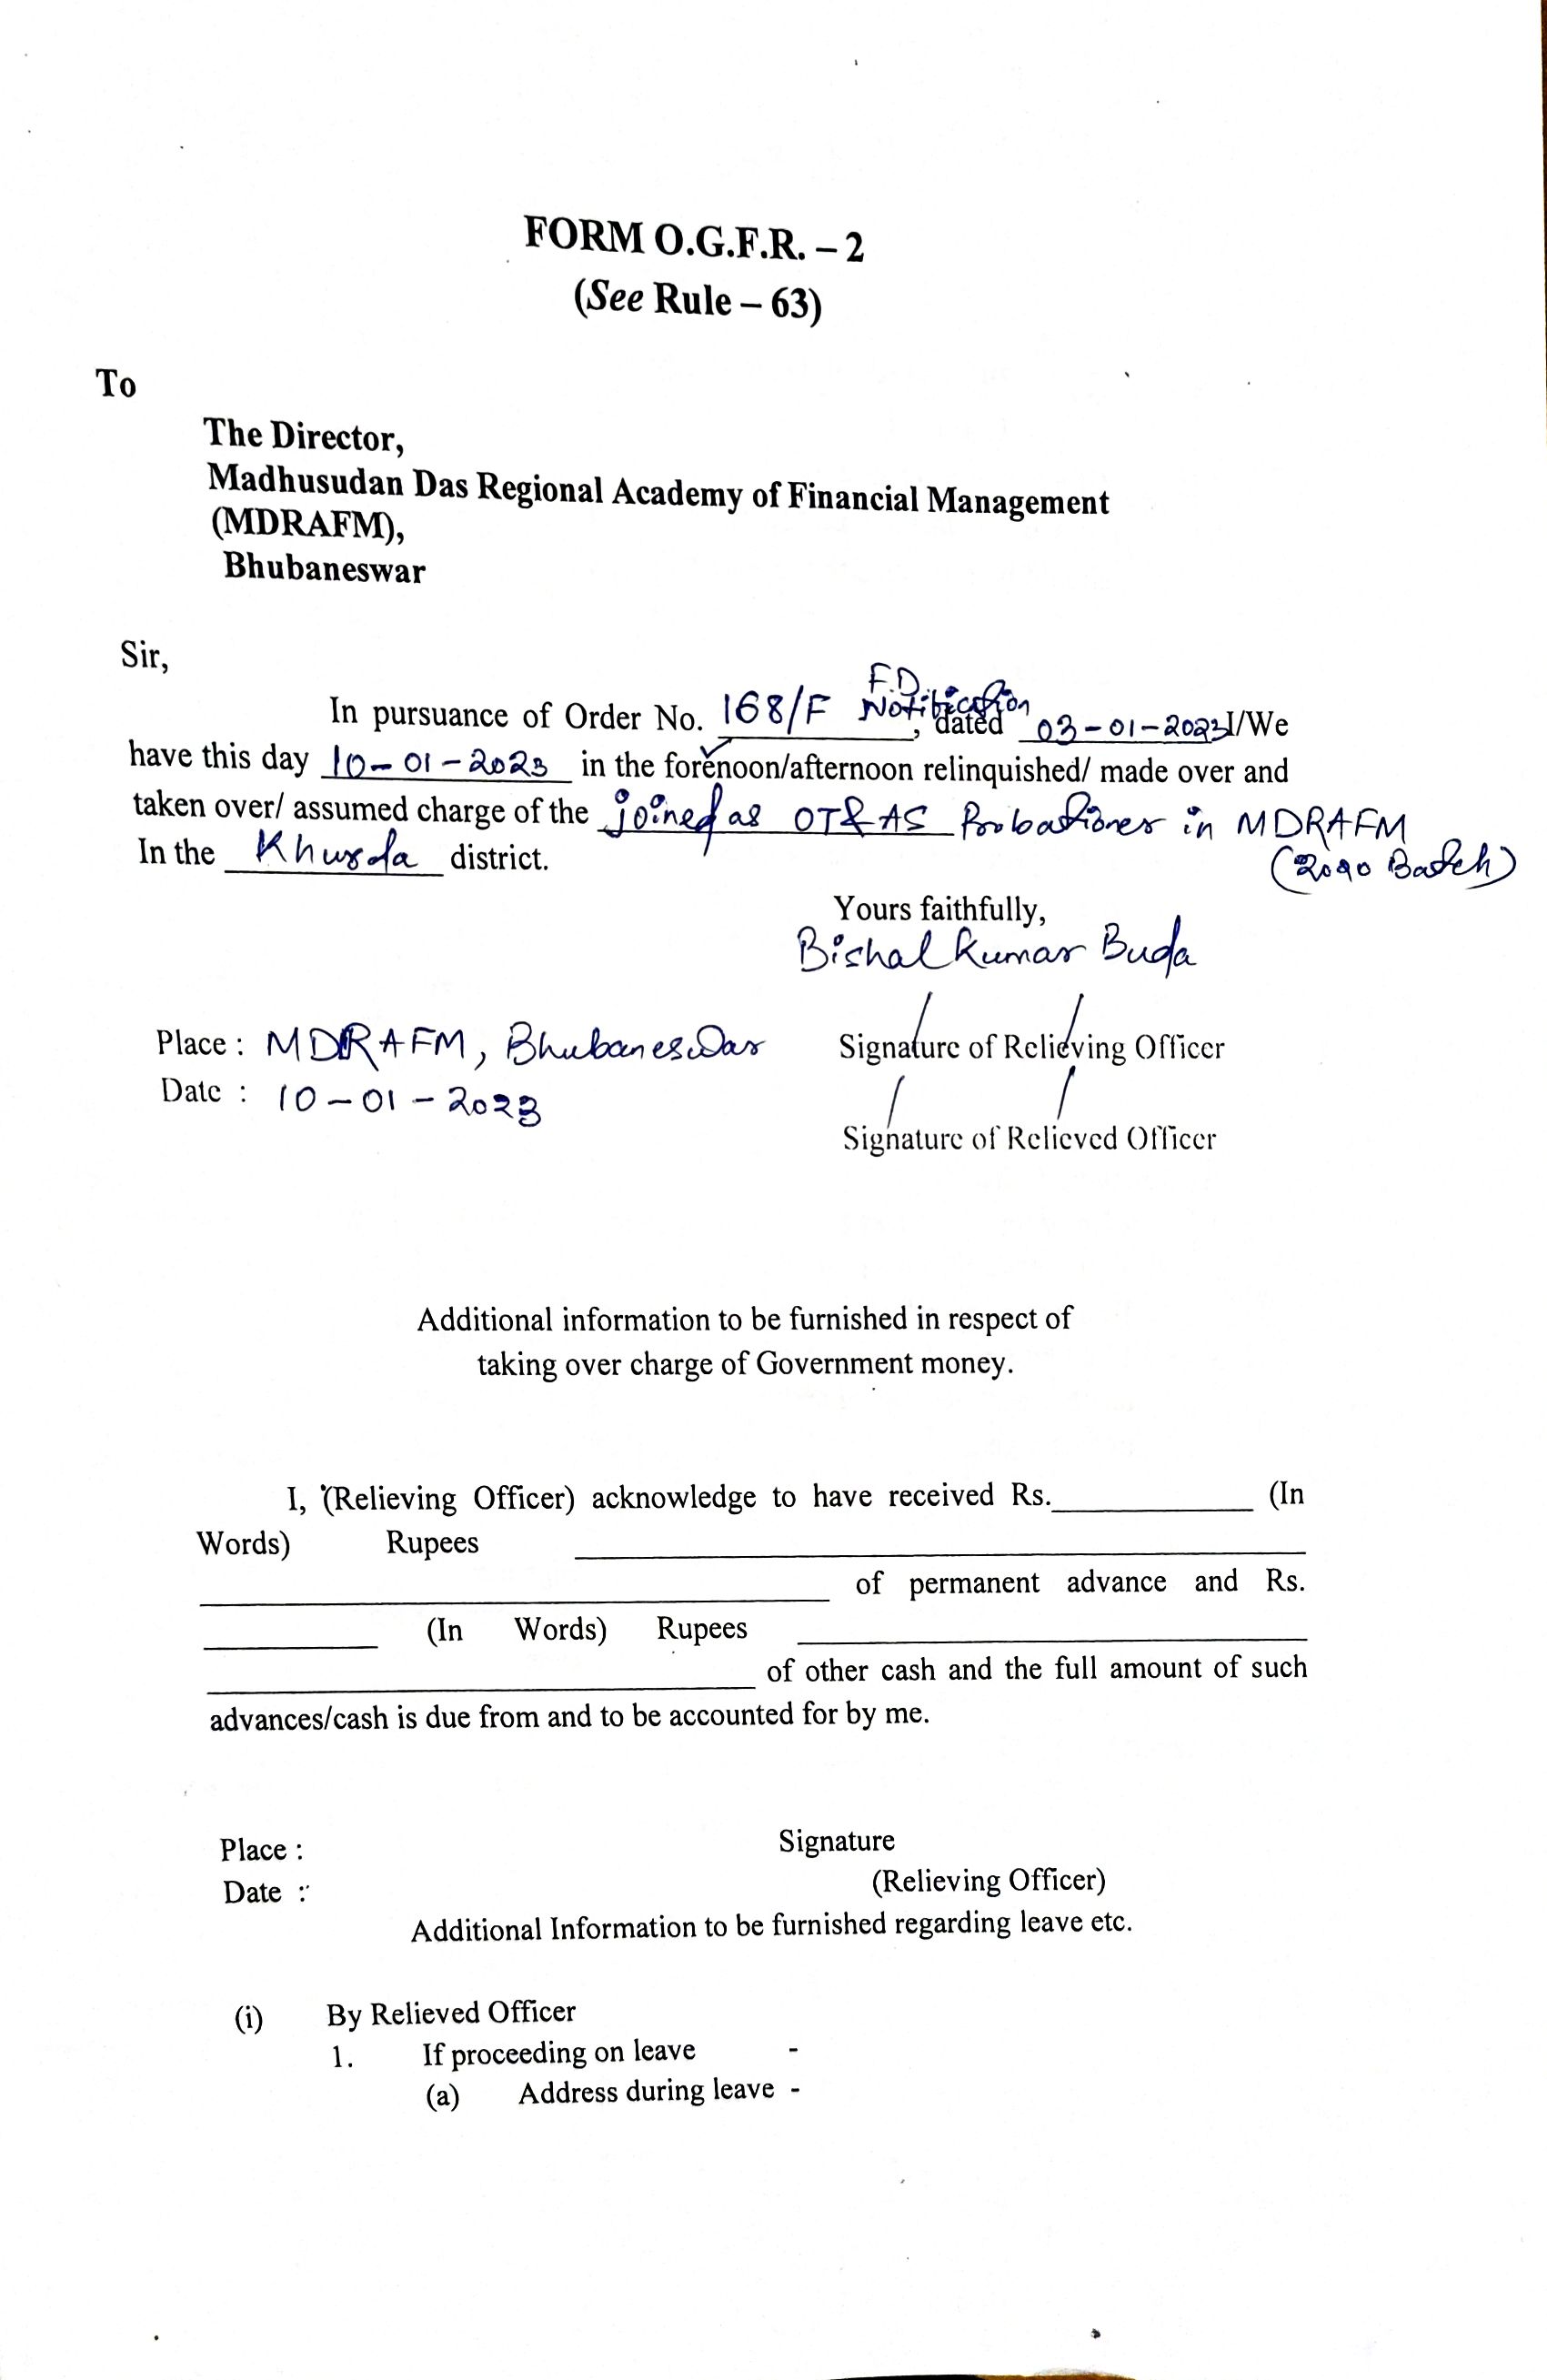 FORM O.G.F.R. – 2
(See Rule – 63)
To
The Director,
Madhusudan Das Regional Academy of Financial Management
(MDRAFM),
Bhubaneswar
Sir,
F.D.
In pursuance of Order No. 168/F Notification, dated 03-01-2023 I/We
have this day 10-01-2023 in the forenoon/afternoon relinquished/ made over and
taken over/ assumed charge of the joined as OT&AS Probationer in MDRAFM
(2020 Batch)
In the Khurda district.
Yours faithfully,
Bishal Kumar Buda
Place : MDRAFM, Bhubaneswar
Signature of Relieving Officer
Date : 10-01-2023
Signature of Relieved Officer
Additional information to be furnished in respect of
taking over charge of Government money.
I, (Relieving Officer) acknowledge to have received Rs.____________ (In
Words) Rupees ____________
____________ of permanent advance and Rs.
____________ (In Words) Rupees ____________
____________ of other cash and the full amount of such
advances/cash is due from and to be accounted for by me.
Place :
Signature
Date :
(Relieving Officer)
Additional Information to be furnished regarding leave etc.
(i) By Relieved Officer
1. If proceeding on leave -
(a) Address during leave -